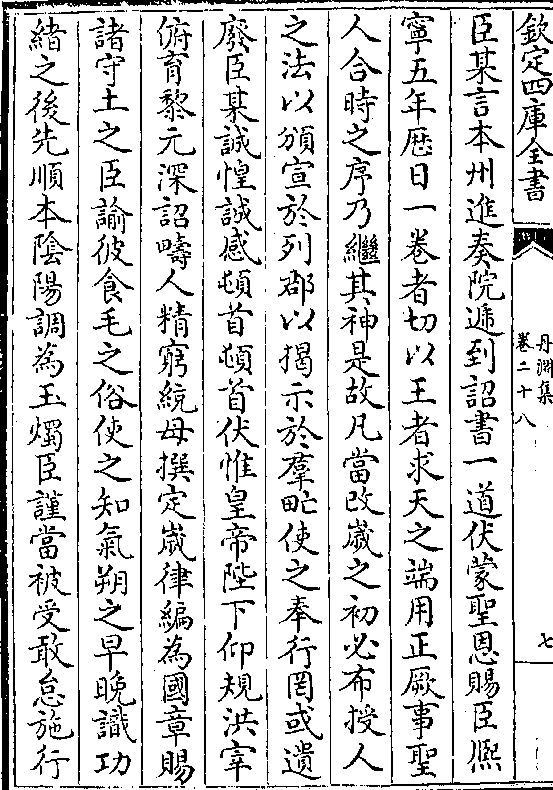 欽定四庫全書
丹淵集
卷二十八
七
臣某言本州進奏院遞到詔書一道伏蒙聖恩賜臣熈
寧五年厯日一卷者切以王者求天之端用正厥事聖
人合時之序乃繼其神是故凡當改歲之初必布授人
之法以頒宣於列郡以揭示於羣甿使之奉行罔或遺
廢臣某誠惶誠感頓首頓首伏惟皇帝陛下仰規洪宰
俯育黎元深詔疇人精窮統母撰定嵗律編為國章賜
諸守土之臣諭彼食毛之俗使之知氣朔之早晚識功
緒之後先順本隂陽調為玉燭臣謹當被受敢怠施行